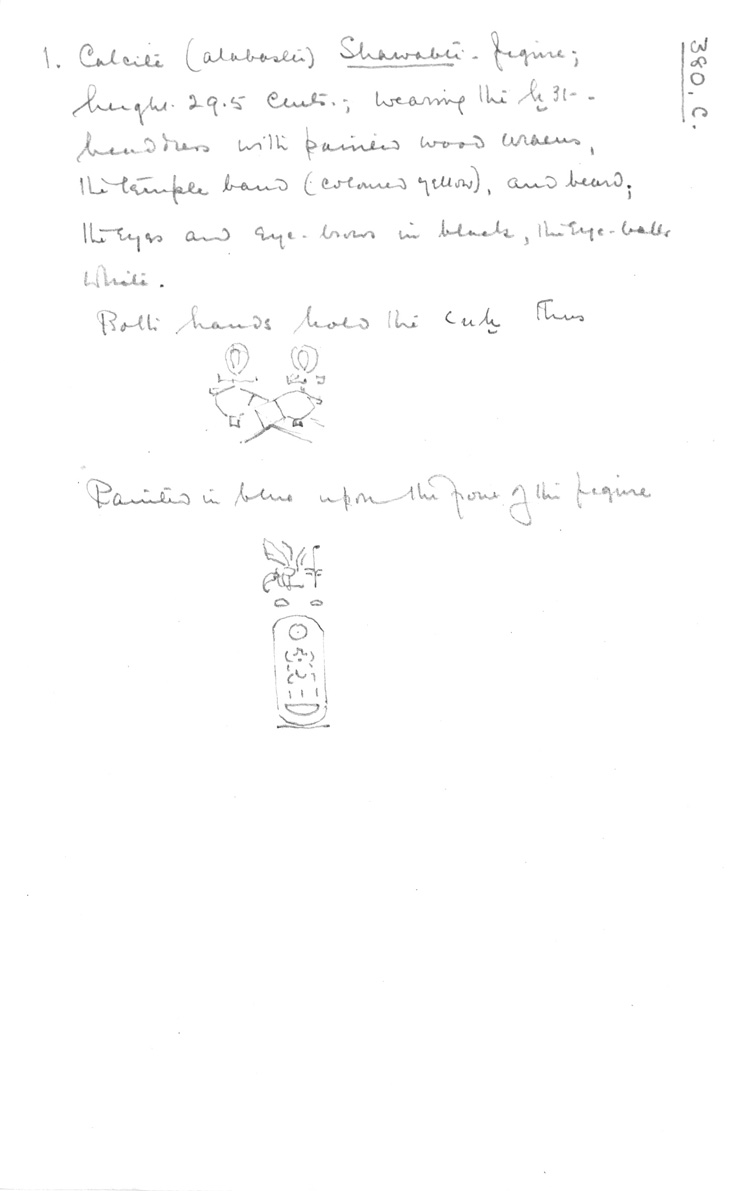 380. C.
1. Calcite (alabaster) Shawabti-figure;
height. 29.5 cents.; wearing the ḫ3t-
headdress with painted wood uraeus,
the temple band (coloured yellow), and beard;
the eyes and eye-brows in black, the eye-balls
white.
Both hands hold the Ꜥnḫ thus
Painted in blue upon the front of the figure